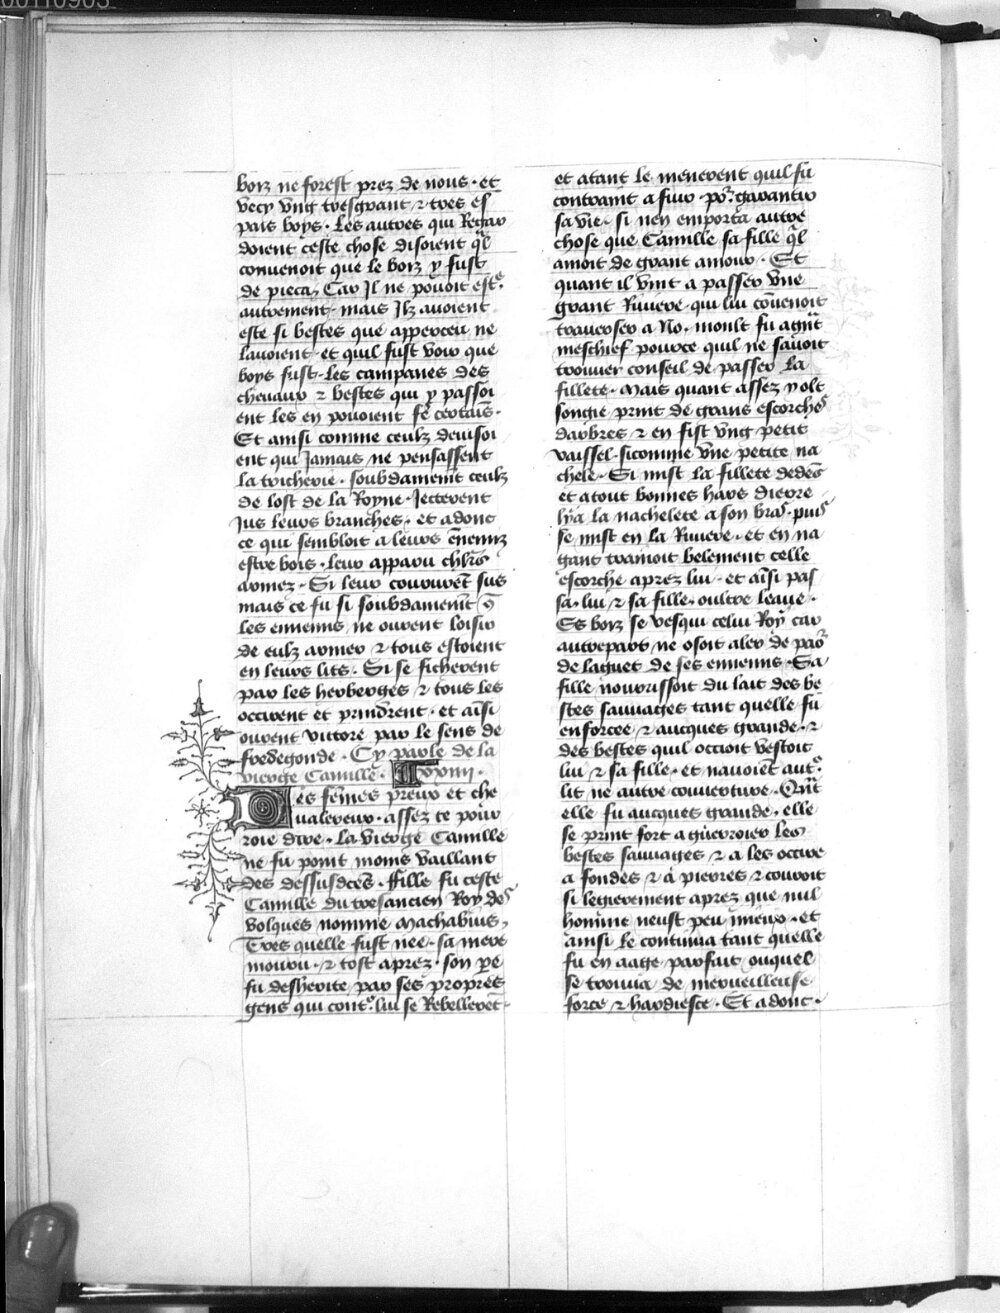 boiz ne forest prez de nous · et
vecy vng tresgrant ⁊ tres es
pais boys · Les autres qui Regar
doient ceste chose disoient ql̃
conuenoit que le boiz y fust
de pieca, Car Il ne pouoit estʳᵉ
autrement · mais Ilz auoient
este si bestes que apperceu ne
lauoient · et quil fust voir que
boys fust · Les campanes des
cheuaux ⁊ bestes qui y passoi
ent les en pouoient fẽ certais̃ ·
Et ainsi comme ceulz deuisoi
ent qui Jamais ne pensassent
la tricherie · soubdainemẽt ceulz
de lost de la Royne · Jecterent
Jus leurs branches · et adonc
ce qui sembloit a leurs ẽnemiz
estre bois · leur apparu chl̃rs
armez · Si leur coururẽt sus
mais ce fu si soubdainemẽt q̃
les ennemis ne ourent loisir
de eulz armer ⁊ tous estoient
en leurs lits · Si se ficherent
par les herberges ⁊ tous les
occirent et prindrent · et aĩsi
ourent victore par le sens de
fredegonde · Cy parle de la
vierge Camille · lxviiii ·
Des fẽmes preux et che
ualereux · assez te pour
roie dire · La vierge Camille
ne fu point moins vaillant
des dessusdcẽs · Fille fu ceste
Camille du tresancien Roy des
volques nomme Machabius,
Tres quelle fust nee · sa mere
mouru · ⁊ tost aprez · son pẽ
fu desherite par ses propres
gens qui contʳᵉ lui se Rebellerẽt ·
et atant le menerent quil fu
contraint a fuir · poʳ garantir
sa vie · si nen emporta autre
chose que Camille sa fille ql̃
amoit de grant amour · Et
quant il vint a passer vne
grant Riuiere · qui lui cõuenoit
trauerser a No · moult fu a grãt
meschief pource quil ne sauoit
trouuer conseil de passer la
fillete · Mais quant assez y olt
songie print de grans escorches
darbres ⁊ en fist vng petit
vaissel · sicomme vne petite na
chele · Si mist la fillete dedẽs
et atout bonnes hars dierre
lya la nachelete a son bras · puis
se mist en la Riuiere · et en na
gant trainoit belement celle
escorche aprez lui · et aĩsi pas
sa · lui ⁊ sa fille · oultre leaue ·
Es boiz se vesqui celui Roy car
autrepart ne osoit aler de paoʳ
de laguet de ses ennemis · Sa
fille nourrissoit du lait des be
stes sauuages tant quelle fu
enforcee ⁊ aucques grande · ⁊
des bestes quil occioit vestoit
lui ⁊ sa fille · et nauoiẽt autʳᵉ
lit ne autre couuerture · Qñt
elle fu aucques grande · elle
se print fort a guerroier les
bestes sauuages ⁊ a les occire
a fondes ⁊ a pierres ⁊ couroit
si legierement aprez que nul
homme neust peu mieux · et
ainsi le continua tant quelle
fu en aage parfait ouquel
se trouua de merueilleuse
force ⁊ hardiesce · Et adonc ·